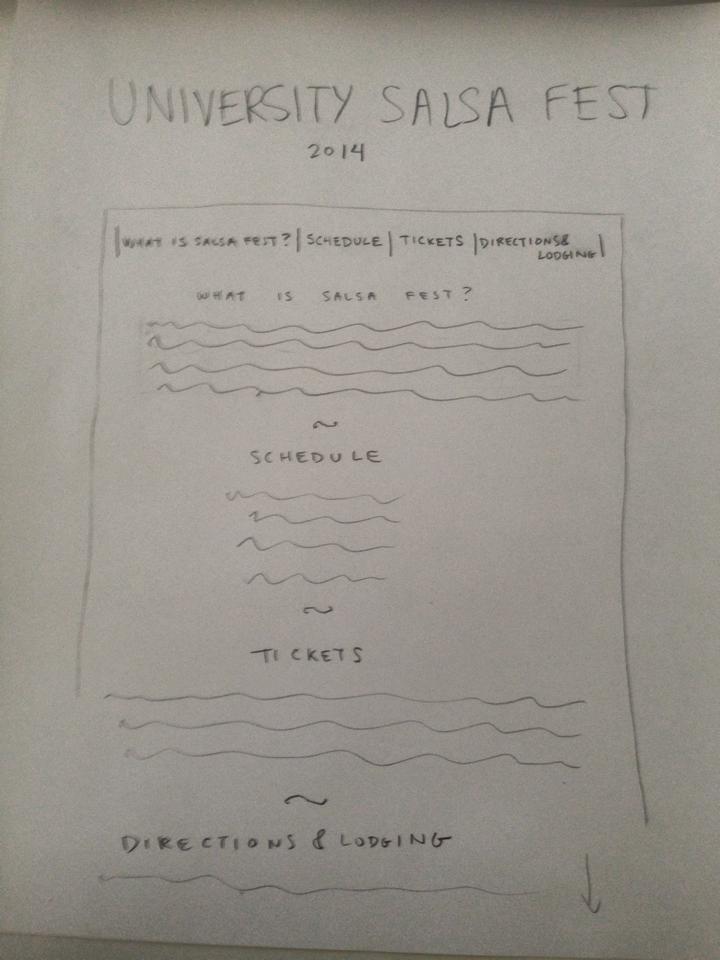 UNIVERSITY SALSA FEST
2014
|WHAT IS SALSA FEST?| SCHEDULE | TICKETS |DIRECTIONS&
LODGING|
WHAT IS SALSA FEST?
~
SCHEDULE
~
TICKETS
~
DIRECTIONS & LODGING